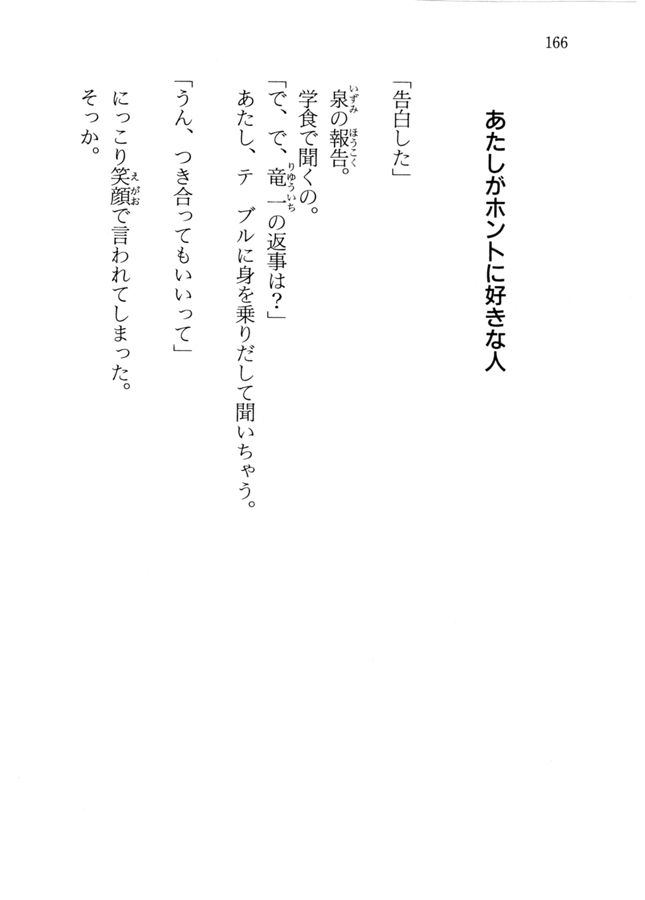 166
あたしがホントに好きな人
「告白した」
泉の報告。
学食で聞くの。
「で、で、竜一の返事は？」
あたし、テ ブルに身を乗りだして聞いちゃう。
「うん、つき合ってもいいって」
にっこり笑顔で言われてしまった。
そっか。